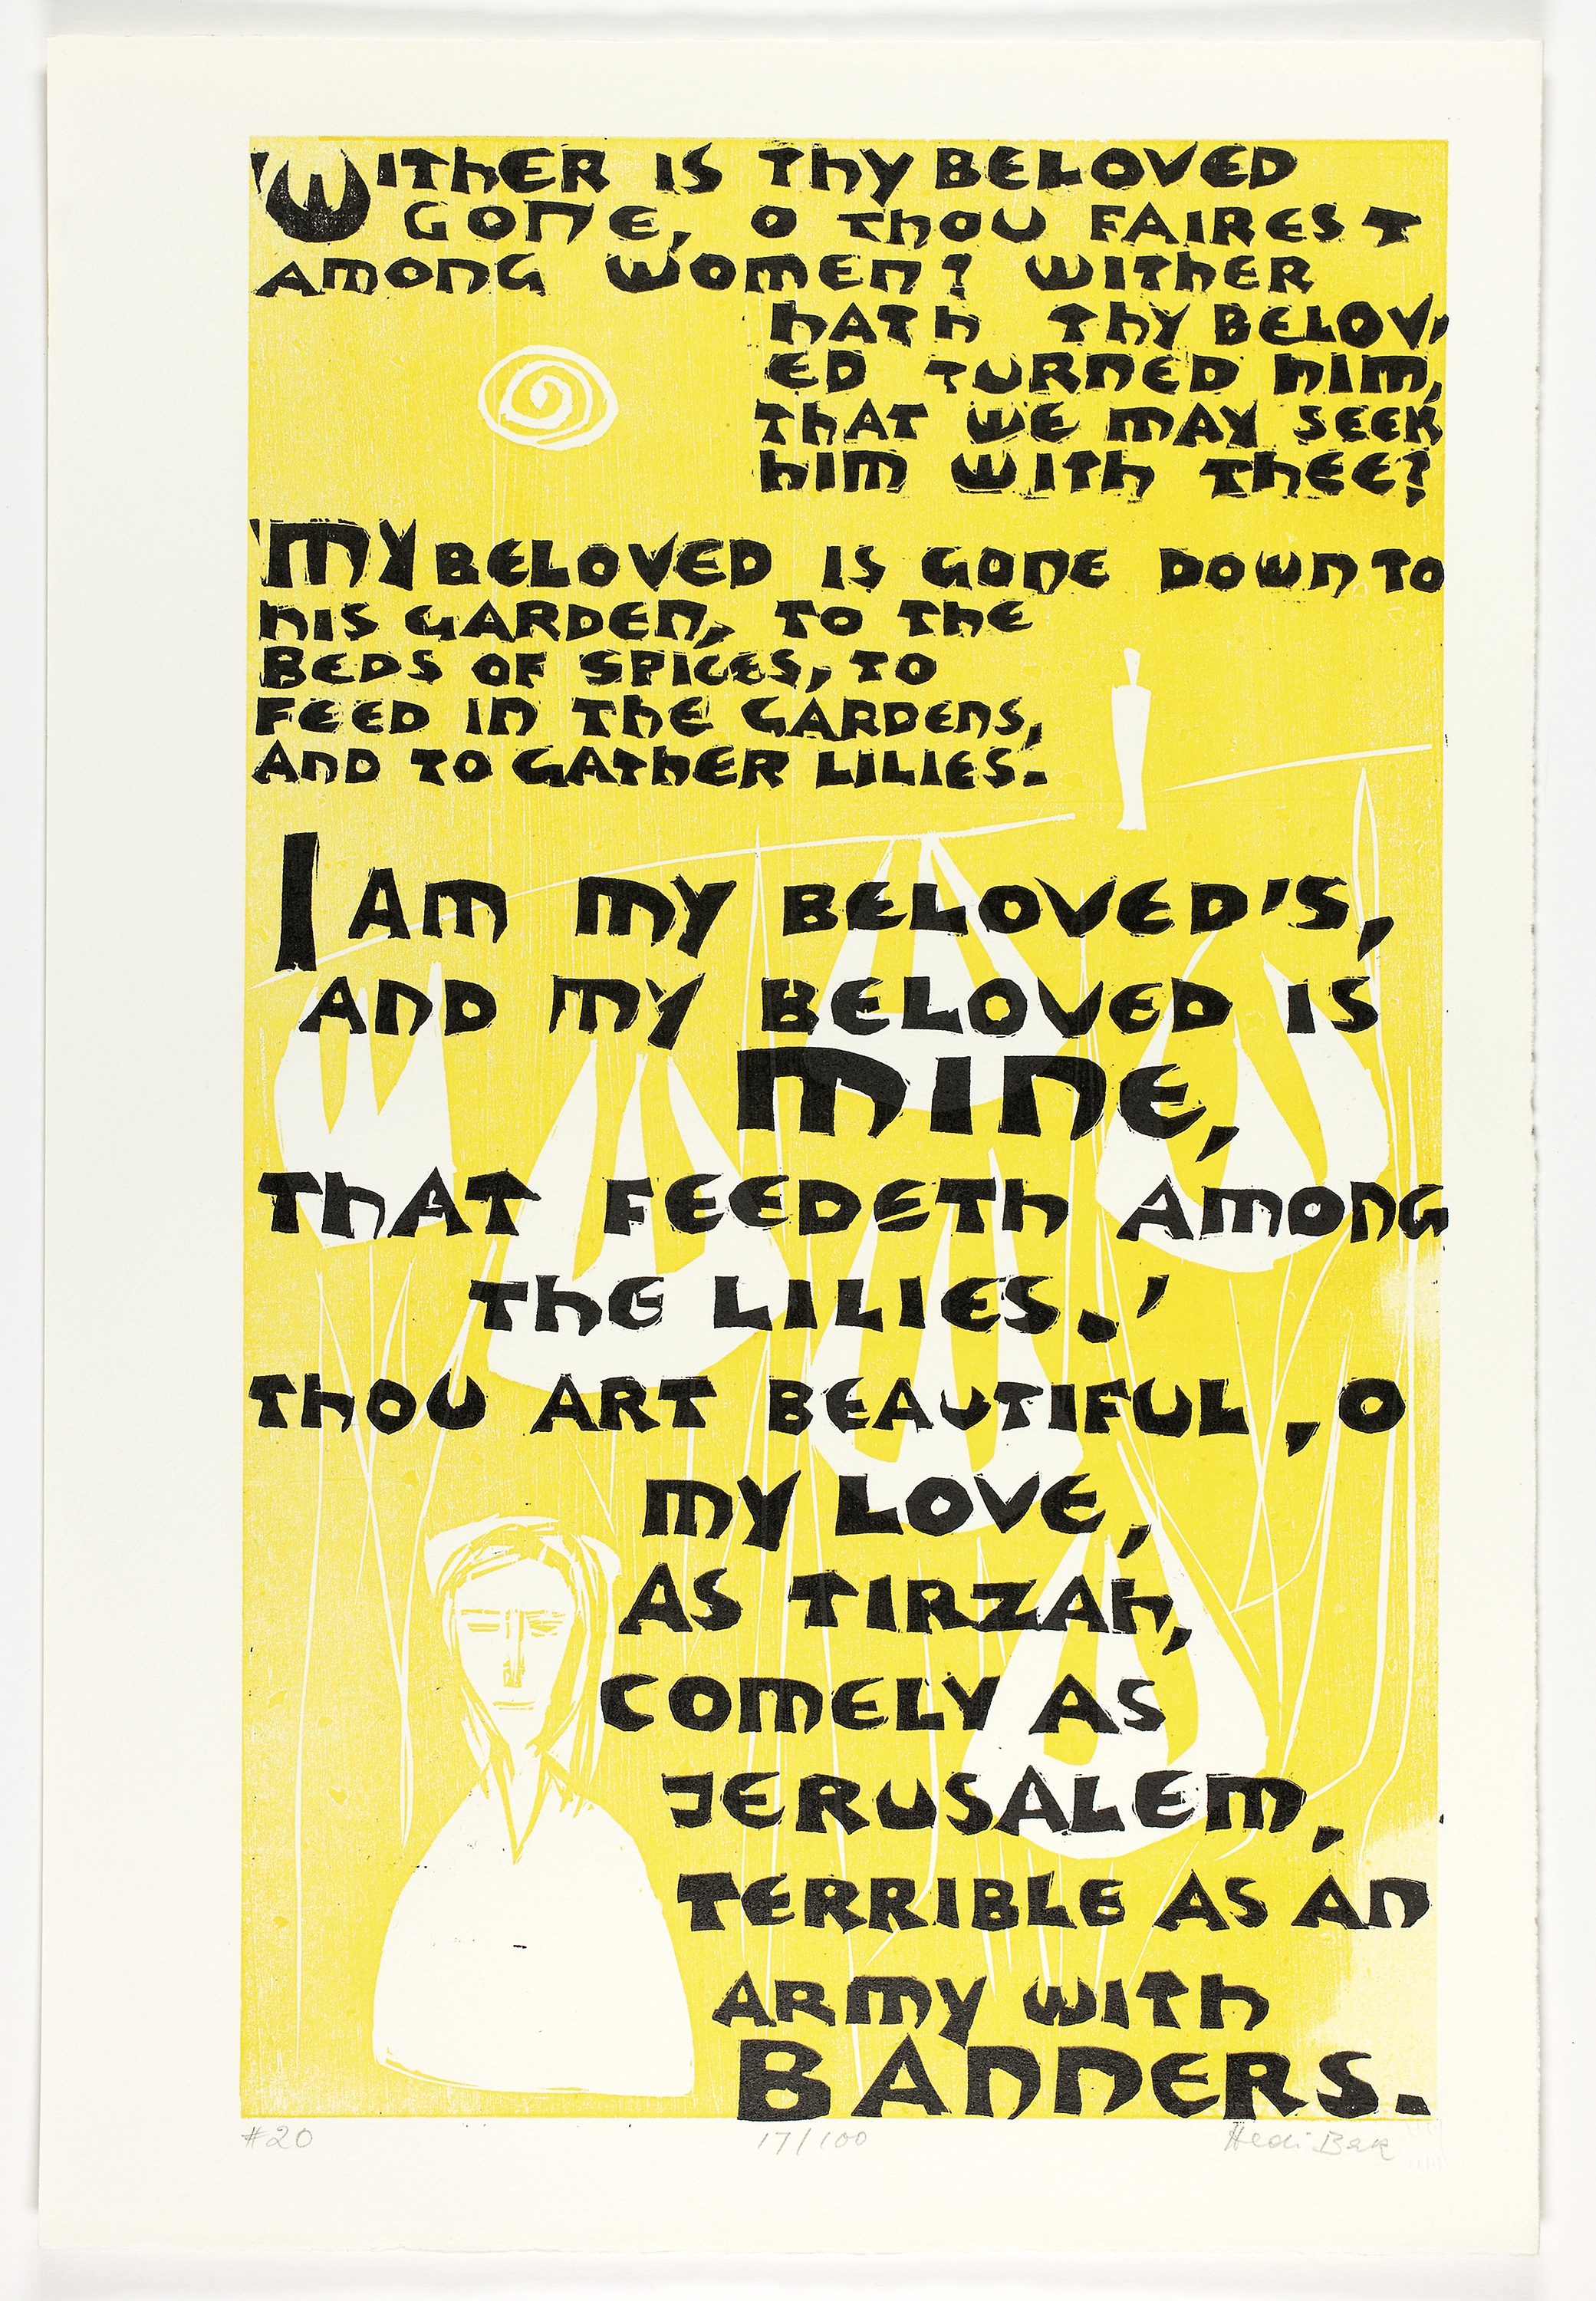 'WITHER IS THY BELOVED
GONE, O THOU FAIREST
AMONG WOMEN? WITHER
HATH THY BELOV,
ED TURNED HIM,
THAT WE MAY SEEK
HIM WITH THEE?
'MY BELOVED IS GONE DOWN TO
HIS GARDEN, TO THE
BEDS OF SPICES, TO
FEED IN THE GARDENS,
AND TO GATHER LILIES.
I AM MY BELOVED'S,
AND MY BELOVED IS
MINE,
THAT FEEDETH AMONG
THE LILIES.'
THOU ART BEAUTIFUL, O
MY LOVE,
AS TIRZAH,
COMELY AS
JERUSALEM,
TERRIBLE AS AN
ARMY WITH
BANNERS.
#20 17/100 Hedi Bak